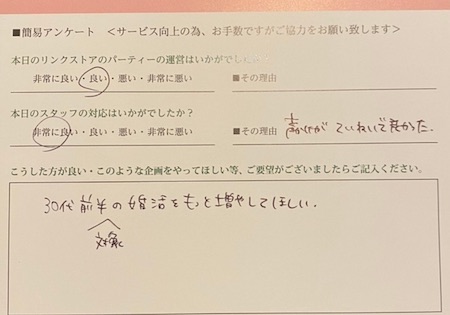 ■簡易アンケート <サービス向上の為、お手数ですがご協力をお願い致します>
本日のリンクストアのパーティーの運営はいかがでしたか?
非常に良い・良い・悪い・非常に悪い ■その理由
本日のスタッフの対応はいかがでしたか?
非常に良い・良い・悪い・非常に悪い ■その理由 声かけがていねいで良かった.
こうした方が良い・このような企画をやってほしい等、ご要望がございましたらご記入ください。
30代前半の婚活をもっと増やしてほしい.
対象